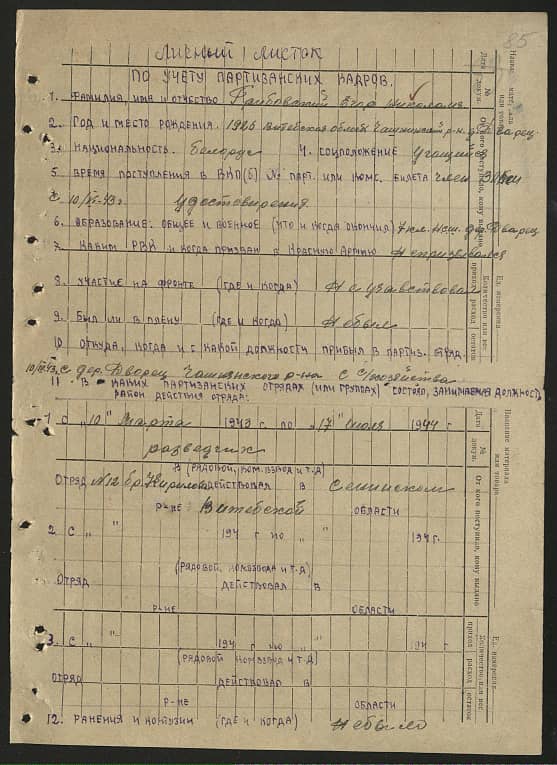 85
Личный листок
по учету партизанских кадров.
1. Фамилия, имя и отчество
2. Год и место рождения. 1926 Витебская область Чашникский р-н. д. Дварец
3. Национальность. Белорус 4. Соцположение Учащийся
5 Время поступления в ВКП(б) № парт. или комс. билета член ВЛКСМ
с 10/VI-43 г. удостоверения
6. Образование: общее и военное (что и когда окончил) 7 кл. НСШ. дер. Дварец
7. Каким РВК и когда призван в Красную Армию Не призывался
8. Участие на фронте (где и когда) Не участвовал
9. Был ли в плену (где и когда) Не был
10 Откуда, когда и с какой должности прибыл в партиз. отряд.
с дер. Дворец Чашникского р-на С с/хозяйства
11 В каких партизанских отрядах (или группах) состоял, занимаемая должность,
район действия отряда:
1 с "10" Марта 1943 г. по "17" Июля 1944 г
разведчик
(рядовой, ком. взвод и т.д)
Отряд №12 бр. Кирилова действовал в Сенинском
р-не Витебской области
2. С " " 194 г по " " 194 г.
(рядовой, комвзвода и т.д)
Отряд действовал в
р-не области
3. С " " 194 г по " " 194 г
(рядовой комвзвод и т.д)
Отряд действовал в
р-не области
12. Ранения и контузии (где и когда) Не было
Дата
№ докум.
От кого поступило, кому выдано
Количество или вес
приход расход остаток
Ед. измерения.
Название материала или товара
Дата
№ докум.
От кого поступило, кому выдано
Ед. измерения.
Количество или вес
приход расход остаток